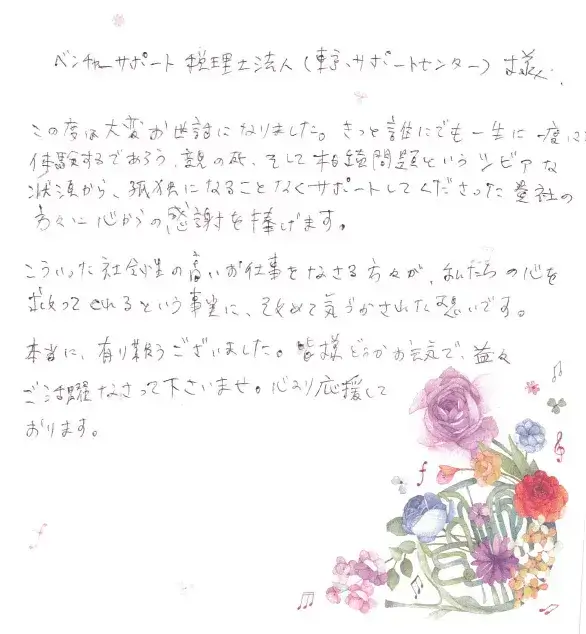 ベンチャーサポート税理士法人(東京サポートセンター)様
この度は大変お世話になりました。きっと誰にでも一生に一度は
体験するであろう、親の死、そして相続問題というシビアな
状況から、孤独になることなくサポートしてくださった貴社の
方々に心からの感謝を捧げます。
こういった社会性の高いお仕事をなさる方々が、私たちの心を
救ってくれるという事実に、改めて気づかされた想いです。
本当に、有り難うございました。皆様どうかお元気で、益々
ご活躍なさって下さいませ。心より応援して
おります。